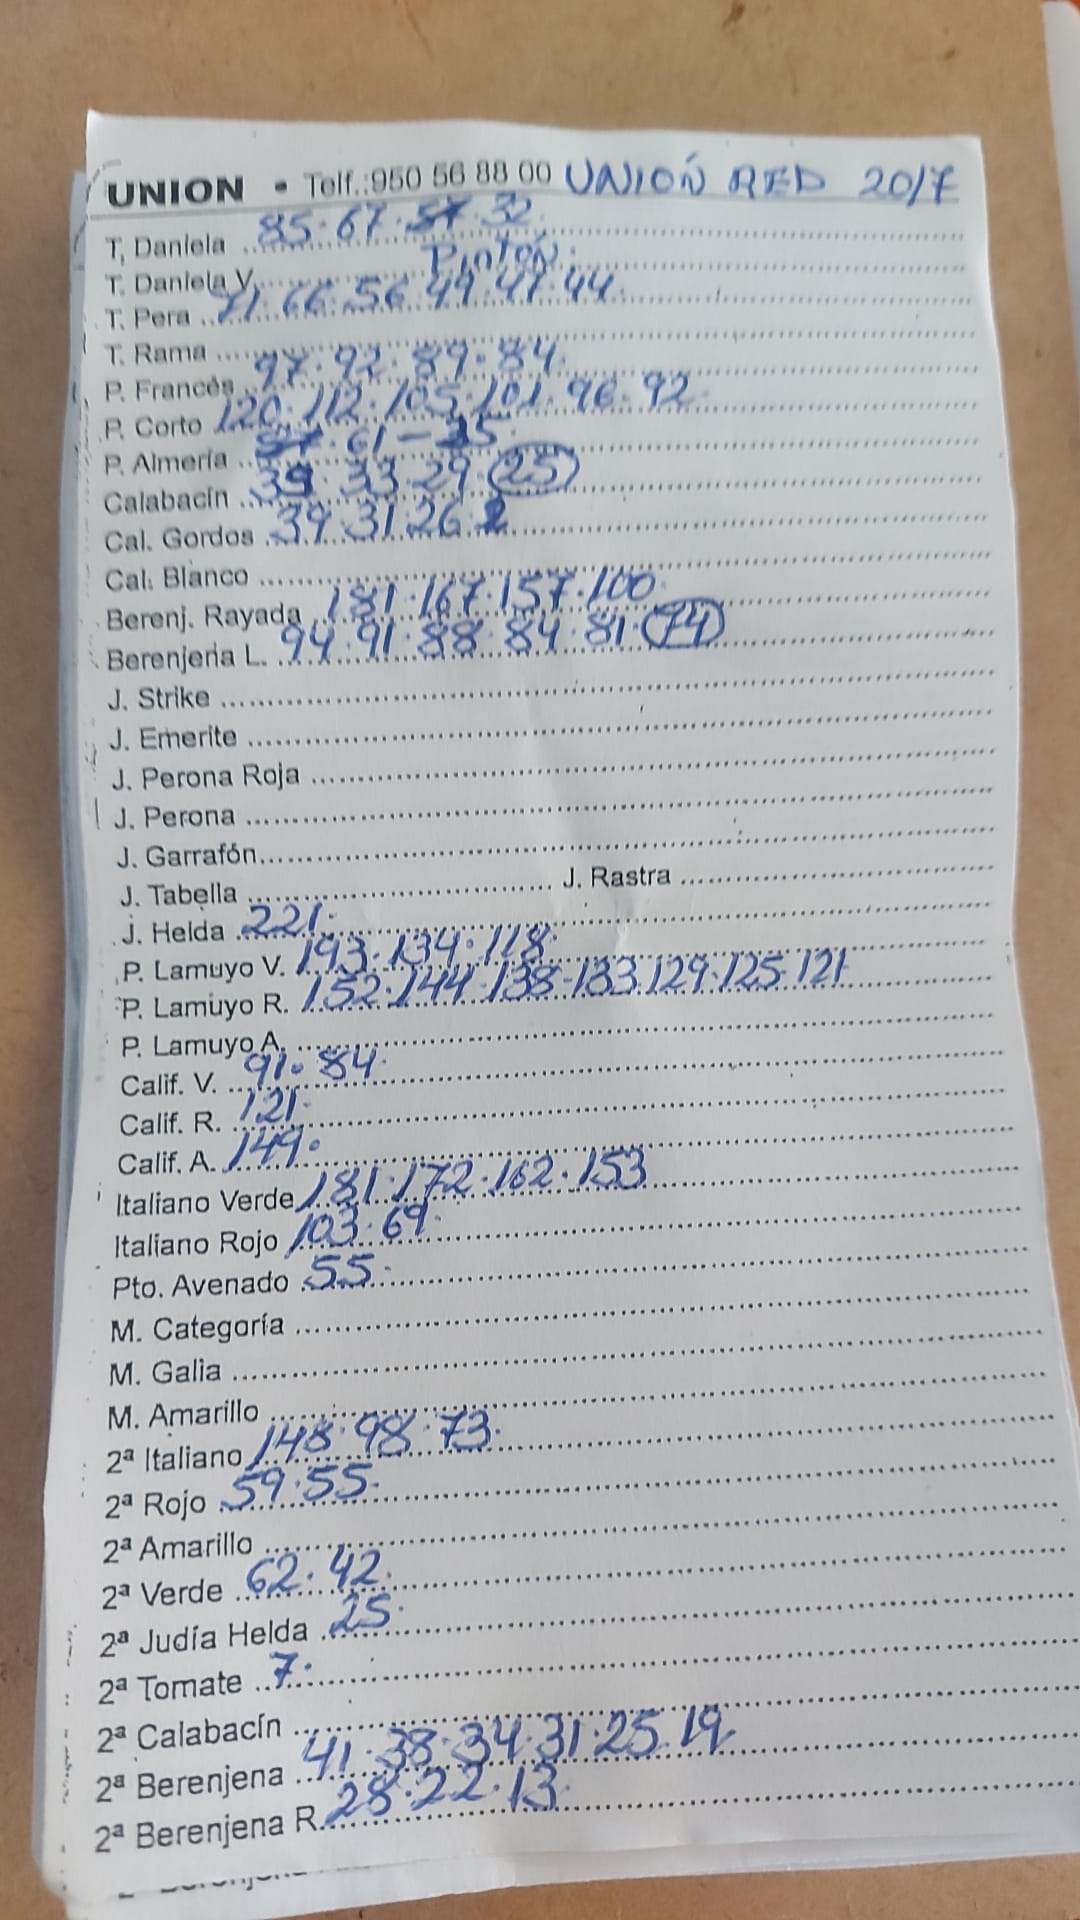 UNION • Telf.:950 56 88 00 UNIÓN RED 20/7
T, Daniela 85·67·57·32
T. Daniela V. Pintón
T. Pera 71·66·56·49·47·44
T. Rama
P. Francés 97·92·89·84
P. Corto 120·112·105·101·96·92
P. Almería 61
Calabacín 39·33·29·25
Cal. Gordos 39·31·26
Cal. Blanco
Berenj. Rayada 181·167·157·100
Berenjena L. 94·91·88·84·81·74
J. Strike
J. Emerite
J. Perona Roja
J. Perona
J. Garrafón
J. Tabella J. Rastra
J. Helda 221
P. Lamuyo V. 193·134·118
P. Lamuyo R. 152·144·138·133·129·125·121
P. Lamuyo A.
Calif. V. 91·84
Calif. R. 121
Calif. A. 149
Italiano Verde 181·172·162·153
Italiano Rojo 103·69
Pto. Avenado 55
M. Categoría
M. Galia
M. Amarillo
2ª Italiano 148·98·73
2ª Rojo 59·55
2ª Amarillo
2ª Verde 62·42
2ª Judía Helda 25
2ª Tomate 7
2ª Calabacín
2ª Berenjena 41·38·34·31·25·19
2ª Berenjena R. 28·22·13